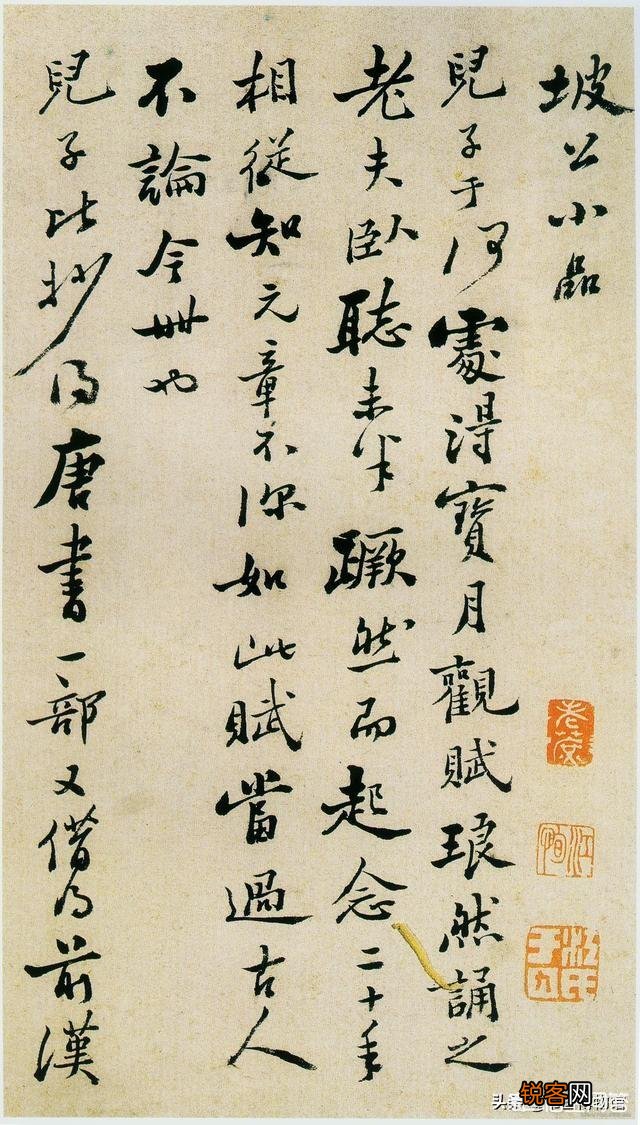 坡公小品
兒子于何處得寶月觀賦琅然誦之
老夫臥聽未半蹶然而起念二十年
相從知元章不深如此賦當過古人
不論今世也
兒子比抄得唐書一部又借得前漢
江恂
锐客网
头条
物馆